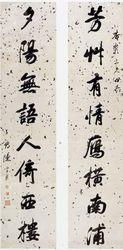 芳艸有情鴈橫南浦
夕陽無語人倚西樓